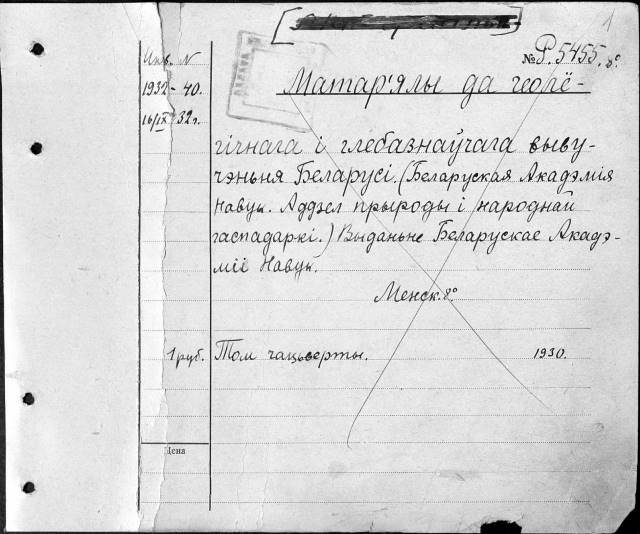 1
№ P.5455.8°
Инв. N
1932 - 40.
16/IX 32 г.
Матар'ялы да геолё-
гічнага і глебазнаўчага выву-
чэньня Беларусі. (Беларуская Акадэмія
Навук. Аддзел прыроды і народнай
гаспадаркі.) Выданьне Беларускае Акадэ-
міі Навук.
Менск. 8°
1 руб. Том чацьверты. 1930.
Цена